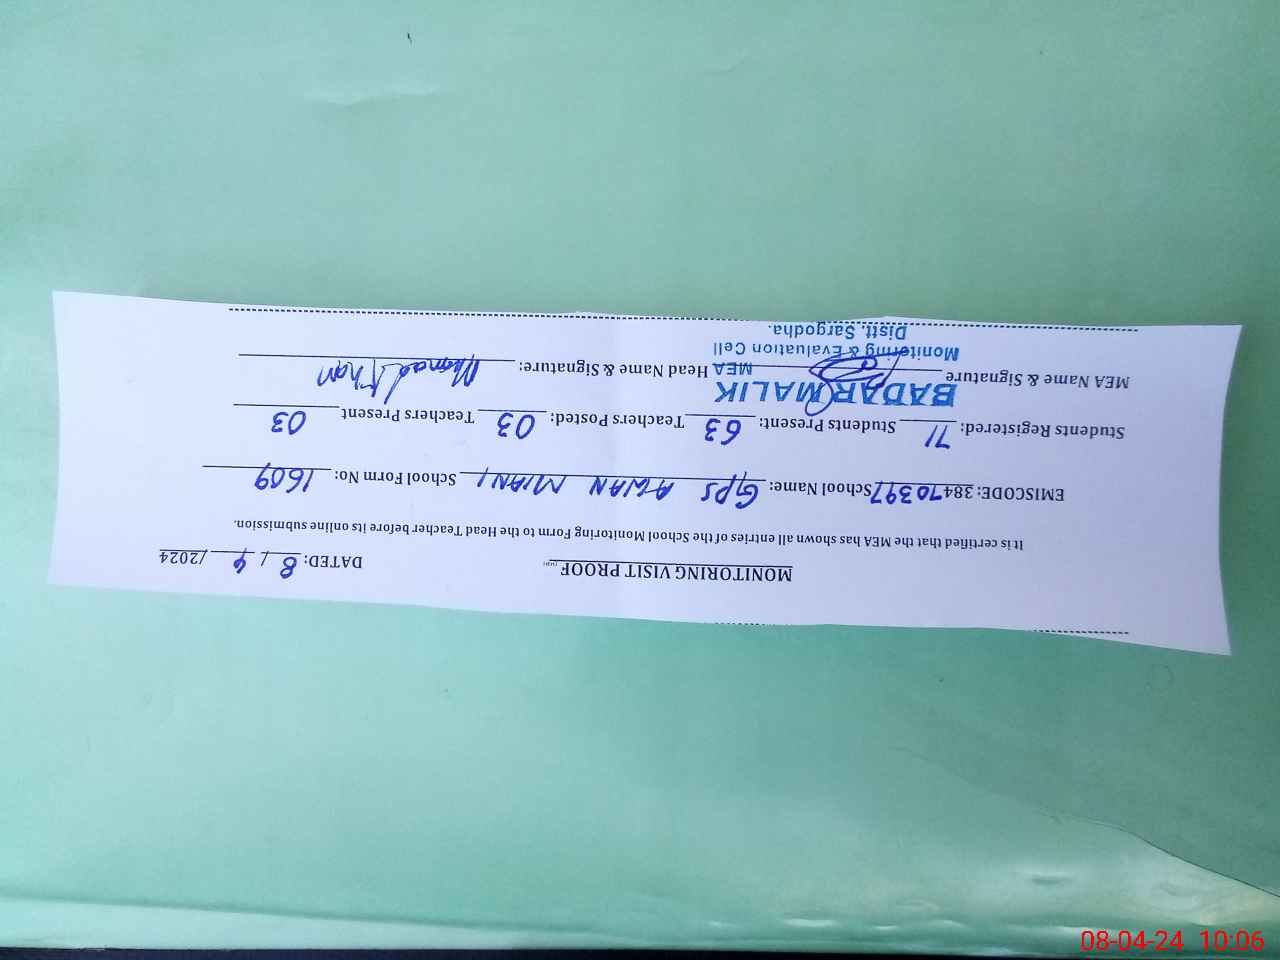 MONITORING VISIT PROOF
DATED: 8 / 4 /2024
It is certified that the MEA has shown all entries of the School Monitoring Form to the Head Teacher before its online submission.
EMISCODE: 38470397 School Name: GPS AWAN MIANI School Form No: 1609
Students Registered: 71 Students Present: 63 Teachers Posted: 03 Teachers Present 03
BADAR MALIK
MEA Name & Signature MEA Head Name & Signature: Khan
Monitoring & Evaluation Cell
Distt. Sargodha.
08-04-24 10:06